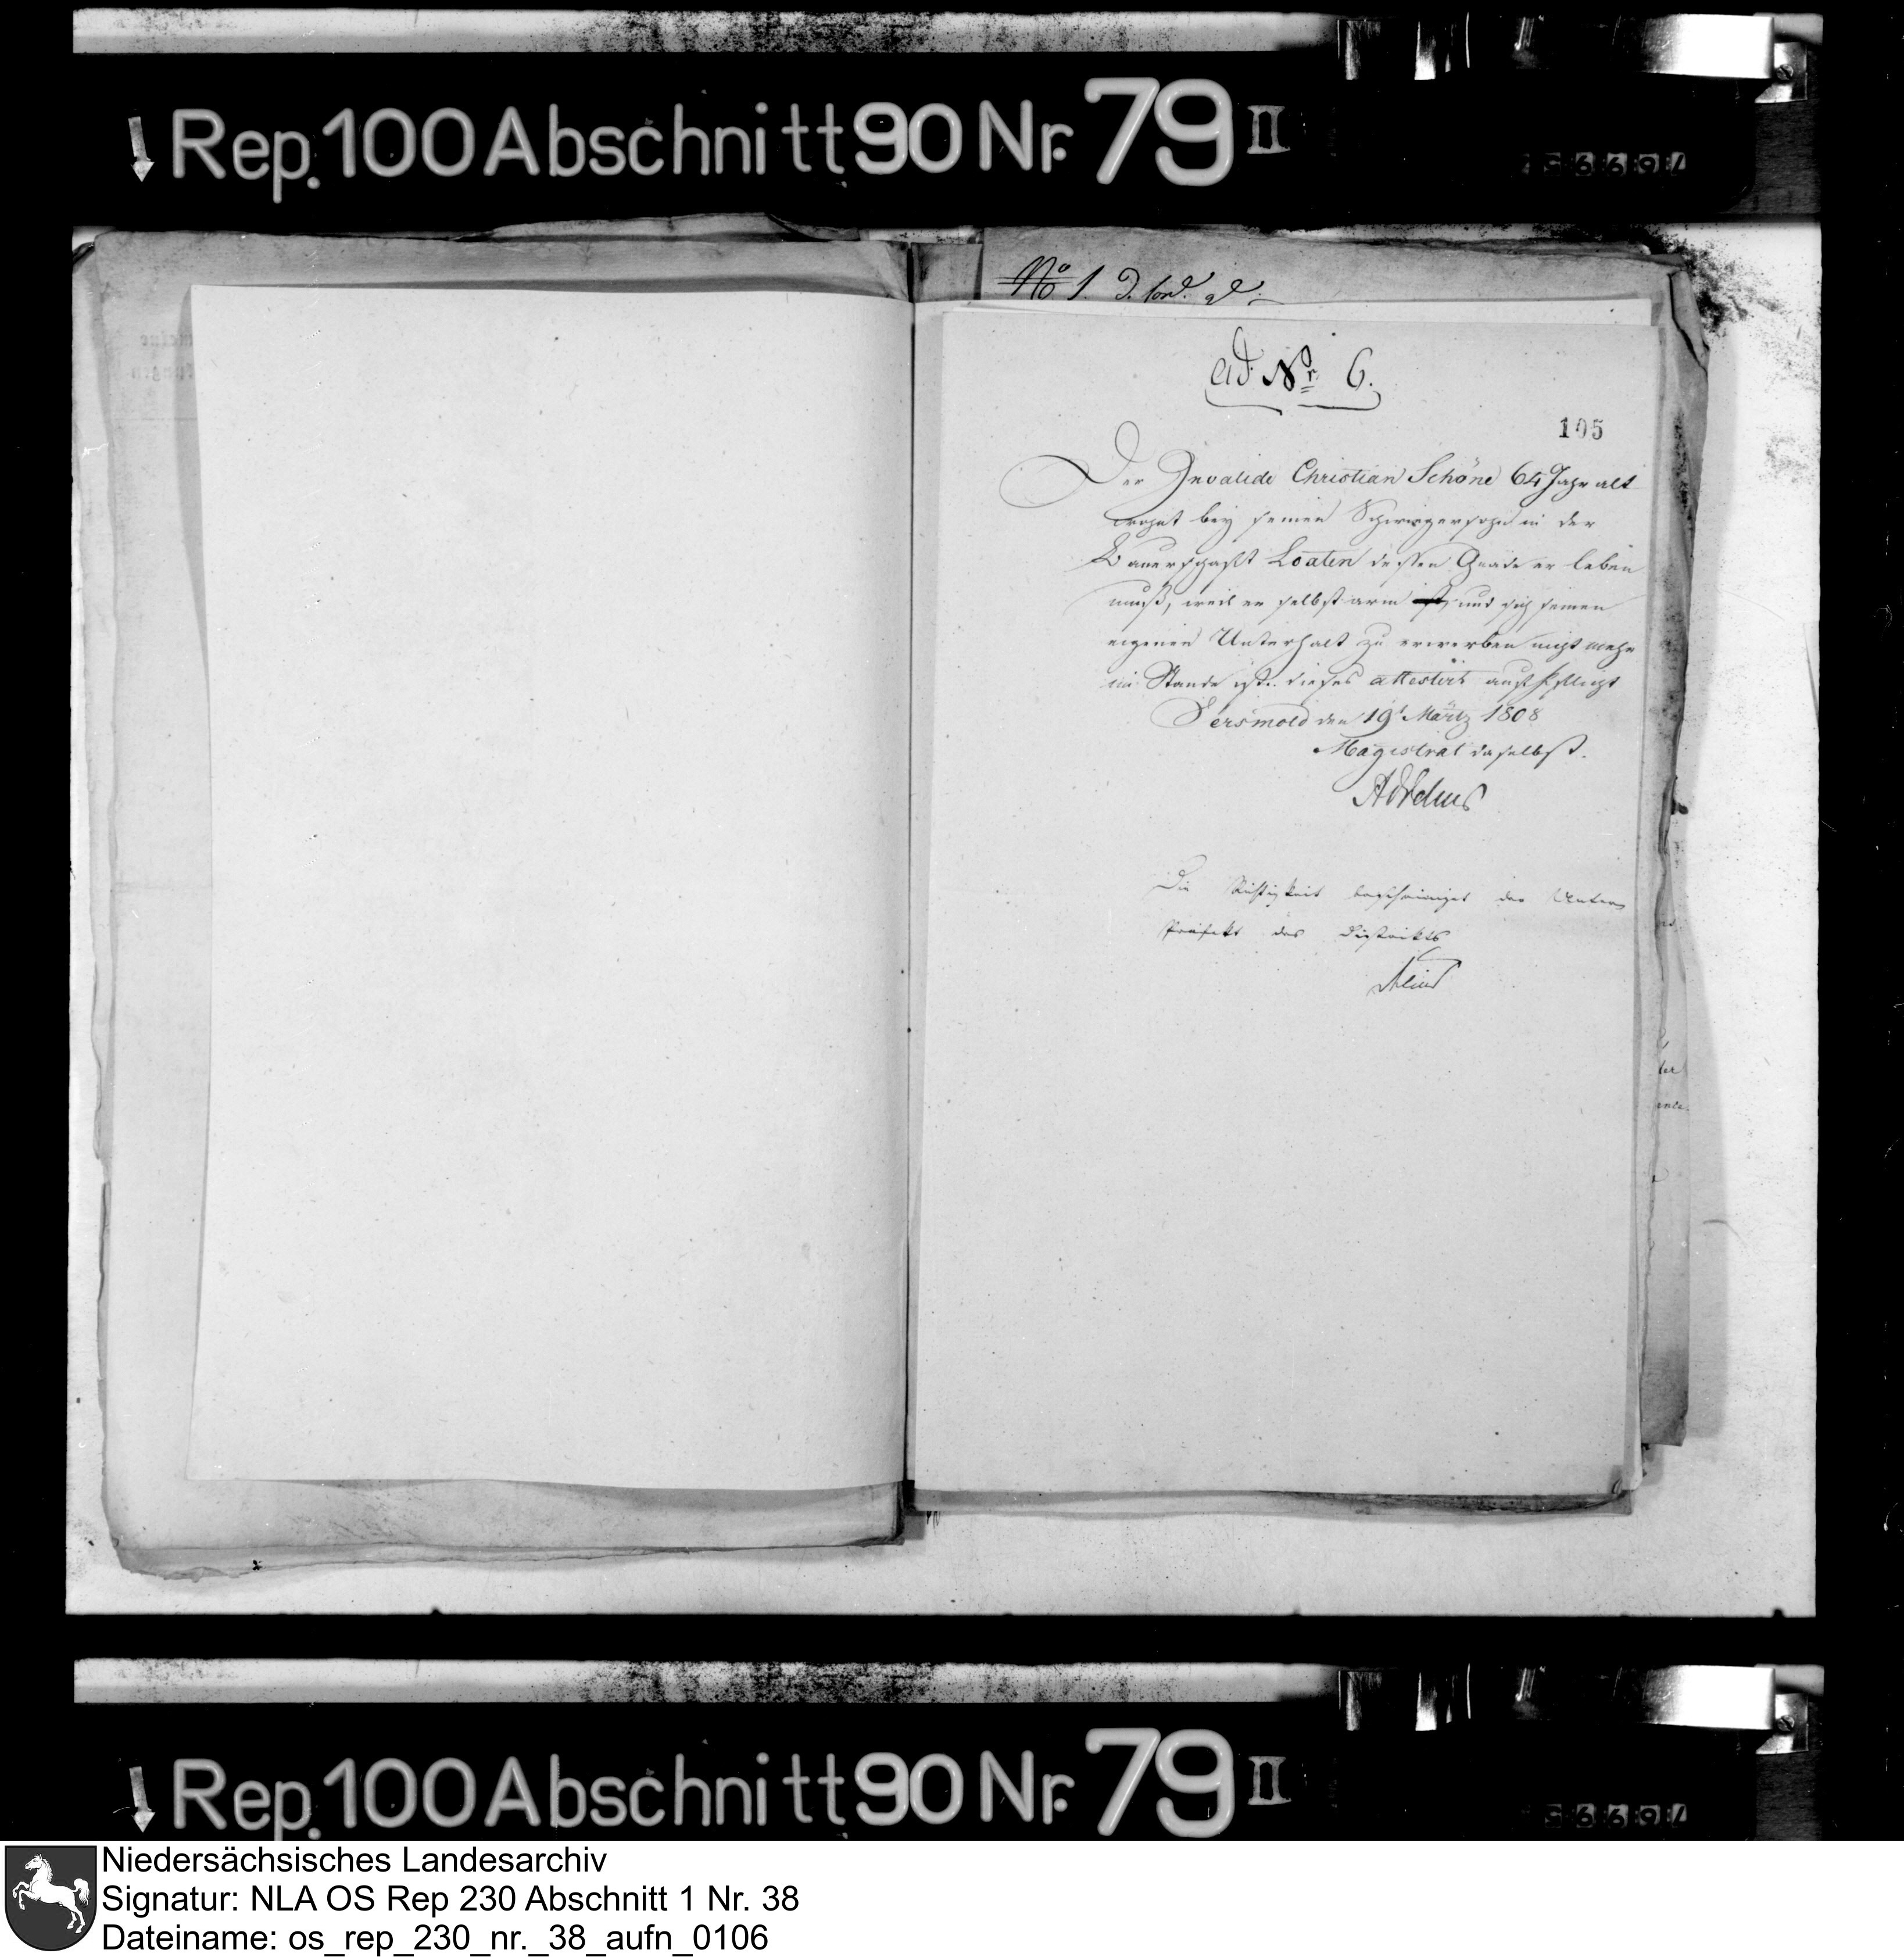 Rep. 100 Abschnitt 90 Nr. 79 II
No 1.
ad Nr. 6.
105
Der Invalide Christian Schöne 64 Jahr alt
wohnt bey seinen Schwiegersohn in der
Bauerschaft Loxten dessen Gnade er leben
muß, weil er selbst arm ist, und sich seinen
eigenen Unterhalt zu erwerben nicht mehr
im Stande ist. dieses attestirt auf Pflicht
Versmold den 19t Märtz 1808
Magistrat daselbst.
Die Richtigkeit bescheiniget der Unter
Präfekt des Distrikts
Rep. 100 Abschnitt 90 Nr. 79 II
Niedersächsisches Landesarchiv
Signatur: NLA OS Rep 230 Abschnitt 1 Nr. 38
Dateiname: os_rep_230_nr._38_aufn_0106